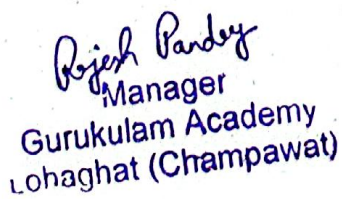 Rajesh Pandey
Manager
Gurukulam Academy
Lohaghat (Champawat)